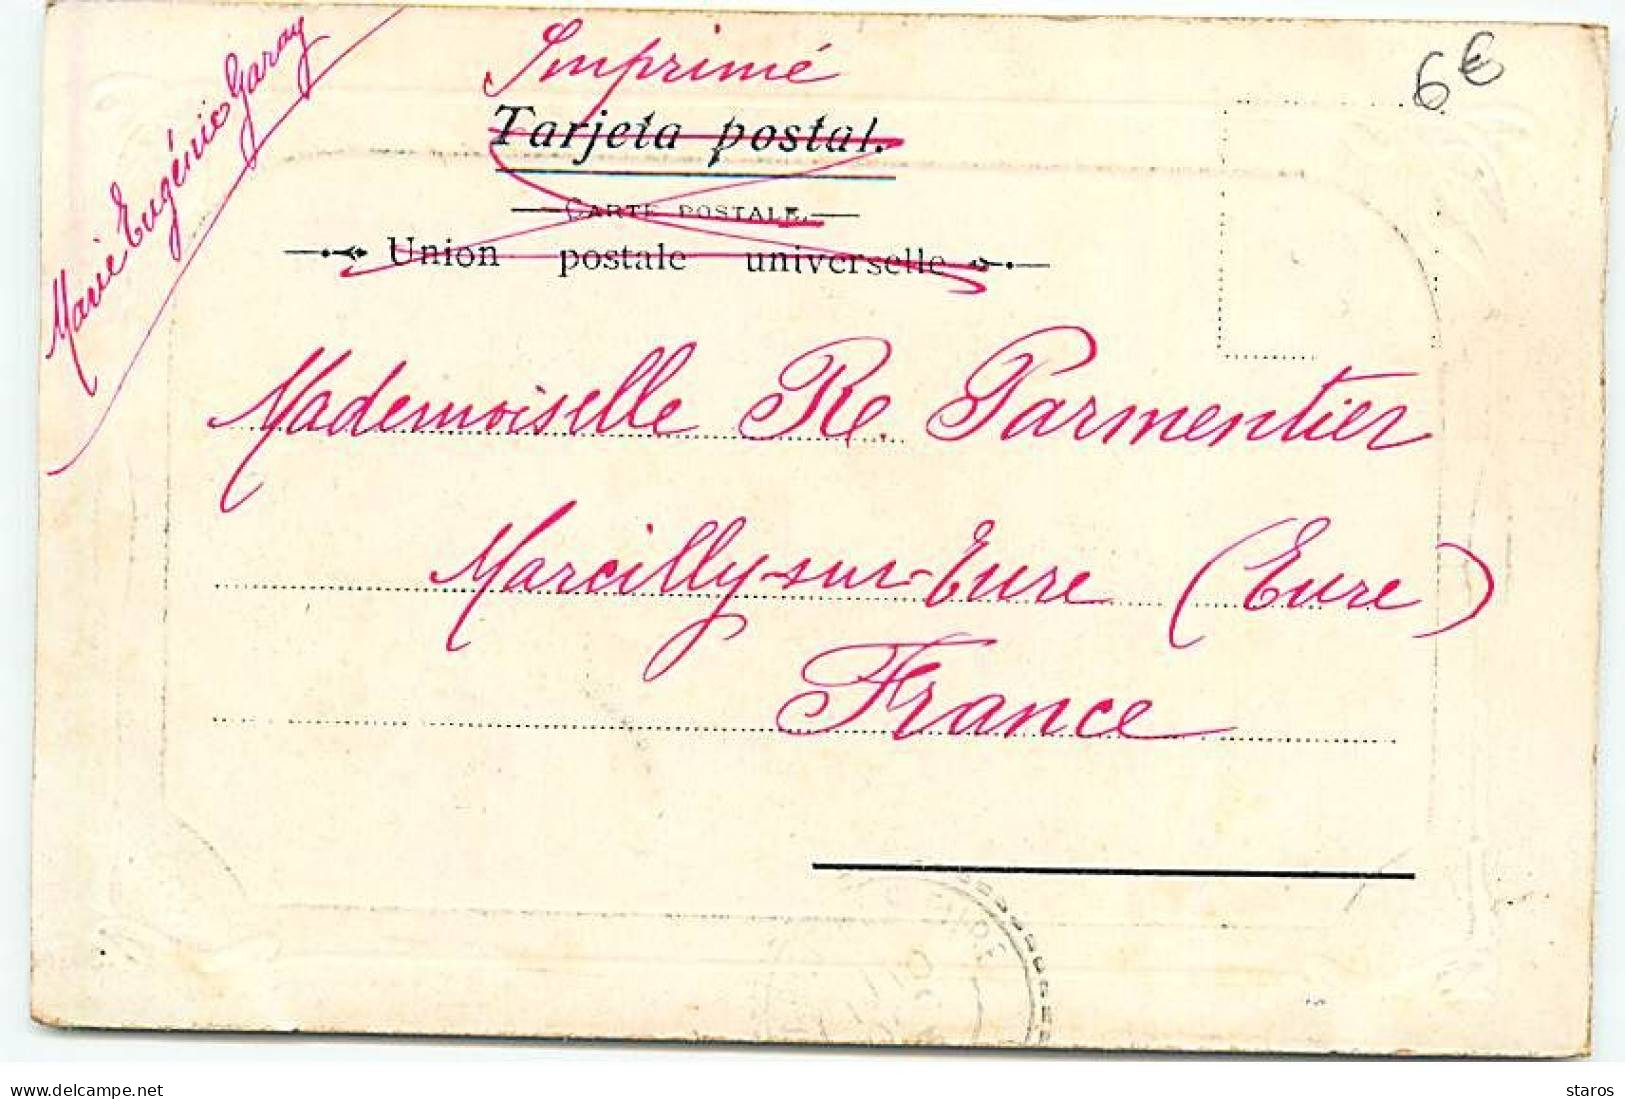 Marie Eugénie Garay
Imprimé
6€
Tarjeta postal.
CARTE POSTALE.
Union postale universelle
Mademoiselle Re. Parmentier
Marcilly-sur-Eure (Eure)
France
delcampe.net
staros